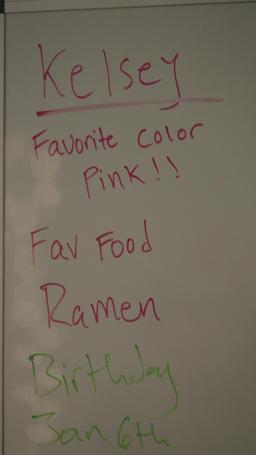 Kelsey
Favorite color
Pink!!
Fav Food
Ramen
Birthday
Jan 6th